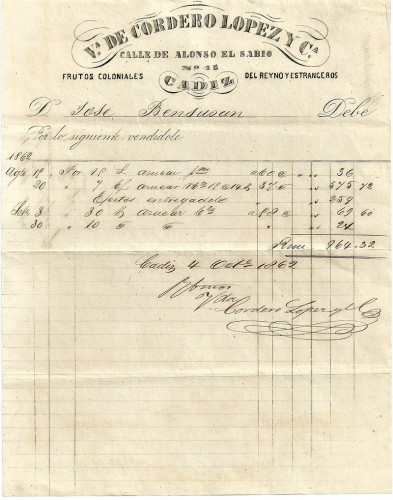 Vª. DE CORDERO LOPEZ Y Cª.
CALLE DE ALONSO EL SABIO
Nº 15
FRUTOS COLONIALES CADIZ DEL REYNO Y ESTRANGEROS
D. Jose Bensusan Debe
Por lo siguiente vendidole
1862
Agto 18 Por 18 a 60 36
20 7 azucar 16 18 a 14 575 72
Efectos entregadole 259
Sete 8 30 azucar 69 60
30 10 24
Rvon 964.32
Cadiz 4 Octe 1862
Vda
Cordero Lopez y Cª